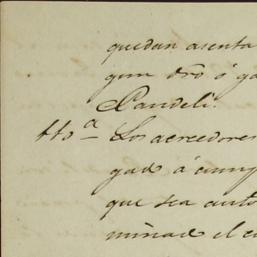 quedan asenta
gun dro ó ga
Pandeli.
Los acreedores
gad á cump
que sea auto
minad el c